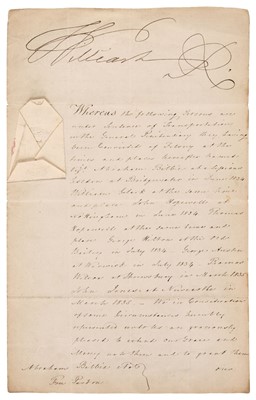 William R.
Whereas the following Persons are
under Sentence of Transportation
in the General Penitentiary they having
been Convicted of Felony at the
times and places hereafter named
Viz.t Abraham at a Special
Session at Bridgwater in June 1834
William Clark at the same time
and place John Hopewell at
Nottingham in June 1834 Thomas
Hopewell at the same time and
place George Hilton at the Old
Bailey in July 1834 George
at Warwick in July 1834
at Shrewsbury in March 1835
John Jones at Newcastle in
March 1835 We in Consideration
of some Circumstances humbly
represented unto Us are graciously
pleased to extend our Grace and
Mercy unto them and to grant them
Abraham &c
our
Free Pardon